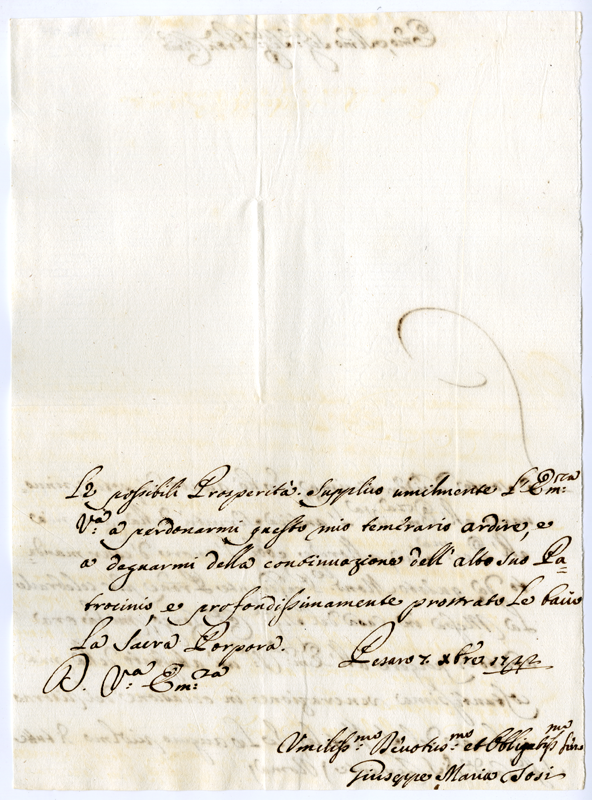 Le possibili Prosperità. Supplico umilmente l'Em:za
V:a a perdonarmi questo mio temerario ardire, e
a degnarmi della continuazione dell'alto suo Pa=
trocinio, e profondissimamente prostrato Le bacio
La Sacra Porpora.
Pesaro 7. Xbre
D. V:a Em:za
Umiliss:mo Devotiss:mo et Obligatiss:mo
Giuseppe Maria Tosi